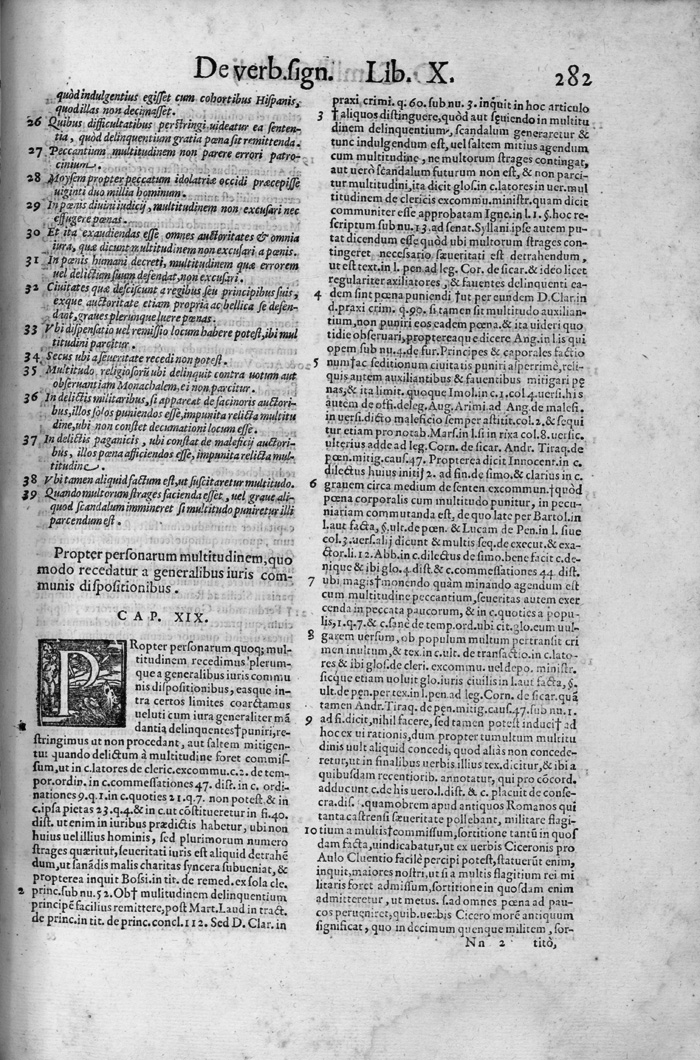 De verb. sign. Lib. X. 282
quòd indulgentius egisset cum cohortibus Hispanis,
quod illas non decimasset.
26 Quibus difficultatibus perstringi uideatur ea senten-
tia, quòd delinquentium gratia pœna sit remittenda.
27 Peccantium multitudinem non parere errori patro-
cinium.
28 Moysem propter peccatum idolatriæ occidi præcepisse
uiginti duo millia hominum.
29 In pœnis diuini iudicij, multitudinem non excusari nec
effugere pœnas.
30 Et ita exaudiendas esse omnes auctoritates & omnia
iura, quæ dicunt multitudinem non excusari a pœnis.
31 In pœnis humani decreti, multitudinem quæ errorem
uel delictum suum defendat, non excusari.
32 Ciuitates quæ desciscunt a regibus seu principibus suis,
exque auctoritate etiam propria ac bellica se defen-
dant, graues plerunque luere pœnas.
33 Vbi dispensatio uel remissio locum habere potest, ibi mul
titudini parcitur.
34 Secus ubi a seueritate recedi non potest.
35 Multitudo religiosorū ubi delinquit contra uotum aut
obseruantiam Monachalem, ei non parcitur.
36 In delictis militaribus, si appareat de facinoris auctori-
bus, illos solos puniendos esse, impunita relicta multitu
dine, ubi non constet decumationi locum esse.
37 In delictis paganicis, ubi constat de maleficij auctori-
bus, illos pœna afficiendos esse, impunita relicta mul-
titudine.
38 Vbi tamen aliquid factum est, ut suscitaretur multitudo.
39 Quando multorum strages facienda esset, uel graue ali-
quod scandalum immineret si multitudo puniretur illi
parcendum est.
Propter personarum multitudinem, quo
modo recedatur a generalibus iuris com-
munis dispositionibus.
CAP. XIX.
PRopter personarum quoq; mul-
titudinem recedimus plerum-
que a generalibus iuris commu
nis dispositionibus, easque in-
tra certos limites coarctamus
ueluti cum iura generaliter mā
dantia delinquentes†puniri, re-
stringimus ut non procedant, aut saltem mitigen-
tur quando delictum à multitudine foret commis-
sum, ut in c. latores de cleric. excommu. c. 2. de tem-
por. ordin. in c. commessationes 47. dist. in c. ordi-
nationes 9. q. 1. in c. quoties 21. q. 7. non potest. & in
c. ipsa pietas 23. q. 4. & in c. ut cōstitueretur in fi. 40.
dist. ut enim in iuribus prædictis habetur, ubi non
huius uel illius hominis, sed plurimorum numero
strages quæritur, seueritati iuris est aliquid detrahē
dum, ut sanādis malis charitas syncera subueniat, &
propterea inquit Bossi. in tit. de remed. ex sola cle.
2 princ. sub nu. 52. Ob† multitudinem delinquentium
principē facilius remittere, post Mart. Laud in tract.
de princ. in tit. de princ. concl. 112. Sed D. Clar. in
praxi crimi. q. 60. sub nu. 3. inquit in hoc articulo
3 † aliquos distinguere, quòd aut sęuiendo in multitu
dinem delinquentium, scandalum generaretur &
tunc indulgendum est, uel saltem mitius agendum
cum multitudine, ne multorum strages contingat,
aut uerò scandalum futurum non est, & non parci-
tur multitudini, ita dicit glos. in c. latores in uer. mul
titudinem de clericis excommu. ministr. quam dicit
communiter esse approbatam Igne. in l. 1. §. hoc re-
scriptum sub nu. 13. ad senat. Syllani. ipse autem pu-
tat dicendum esse quòd ubi multorum strages con-
tingeret necessario sæueritati est detrahendum,
ut est text. in l. pen. ad leg. Cor. de sicar. & ideo licet
regulariter axiliatores, & fauentes delinquenti ea-
4 dem sint pœna puniendi †ut per eundem D. Clar. in
d. praxi crim. q. 90. si tamen sit multitudo auxilian-
tium, non puniri eos eadem pœna. & ita uideri quo
tidie obseruari, proptereaque dicere Ang. in l. is qui
opem sub nu. 4. de fur. Principes & caporales factio
5 num †ac seditionum ciuitatis puniri asperrimè, reli-
quis autem auxiliantibus & fauentibus mitigari pe
nas, & ita limit. quoque Imol. in c. 1. col. 4. uersi. his
autem de offi. deleg. Aug. Arimi. ad Ang. de malefi.
in uersi. dicto maleficio semper astitit. col. 2. & sequi
tur etiam pro notab. Mars. in l. si in rixa col. 8. uersic.
ulterius adde ad leg. Corn. de sicar. Andr. Tiraq. de
pœn. mitig. caus. 47. Propterea dicit Innocent. in c.
dilectus huius initij 2. ad fin. de simo. & clarius in c.
6 grauem circa medium de senten. excommun. †quòd
pœna corporalis cum multitudo punitur, in pecu-
niariam commutanda est, de quo late per Bartol. in
l. aut facta, §. ult. de pœn. & Lucam de Pen. in l. siue
col. 3. uers. alij dicunt & multis seq. de execut. & exa-
ctor. li. 12. Abb. in c. dilectus de simo. bene facit c. de-
nique & ibi glo. 4. dist. & c. commessationes 44. dist.
7 ubi magis†monendo quàm minando agendum est
cum multitudine peccantium, seueritas autem exer
cenda in peccata paucorum, & in c. quoties a popu-
lis, 1. q. 7. & c. sanè de temp. ord. ubi cit. glo. eum uul-
8 garem uersum, ob populum multum pertransit cri
men inultum, & tex. in c. ult. de transactio. in c. lato-
res & ibi glos. de cleri. excommu. uel depo. ministr.
sicque etiam uoluit glo. iuris ciuilis in l. aut facta, §.
ult. de pen. per tex. in l. pen. ad leg. Corn. de sicar. quā
tamen Andr. Tiraq. de pen. mitig. caus. 47. sub nu. 1.
9 ad fi. dicit, nihil facere, sed tamen potest induci† ad
hoc ex ui rationis, dum propter tumultum multitu
dinis uult aliquid concedi, quod aliàs non concede-
retur, ut in finalibus uerbis illius tex. dicitur, & ibi a
quibusdam recentiorib. annotatur, qui pro cōcord.
adducunt c. de his uero. l. dist. & c. placuit de conse-
cra. dis. quamobrem apud antiquos Romanos qui
tanta castrensi sæueritate pollebant, militare flagi-
10 tium a multis†commissum, sortitione tantū in quos
dam facta, uindicabatur, ut ex uerbis Ciceronis pro
Aulo Cluentio facilè percipi potest, statuerūt enim,
inquit, maiores nostri, ut si a multis flagitium rei mi
litaris foret admissum, sortitione in quosdam enim
admitteretur, ut metus. s. ad omnes pœna ad pau-
cos perueniret, quib. uerbis Cicero morē antiquum
significat, quo in decimum quenque militem, sor-
Nn 2 titò,